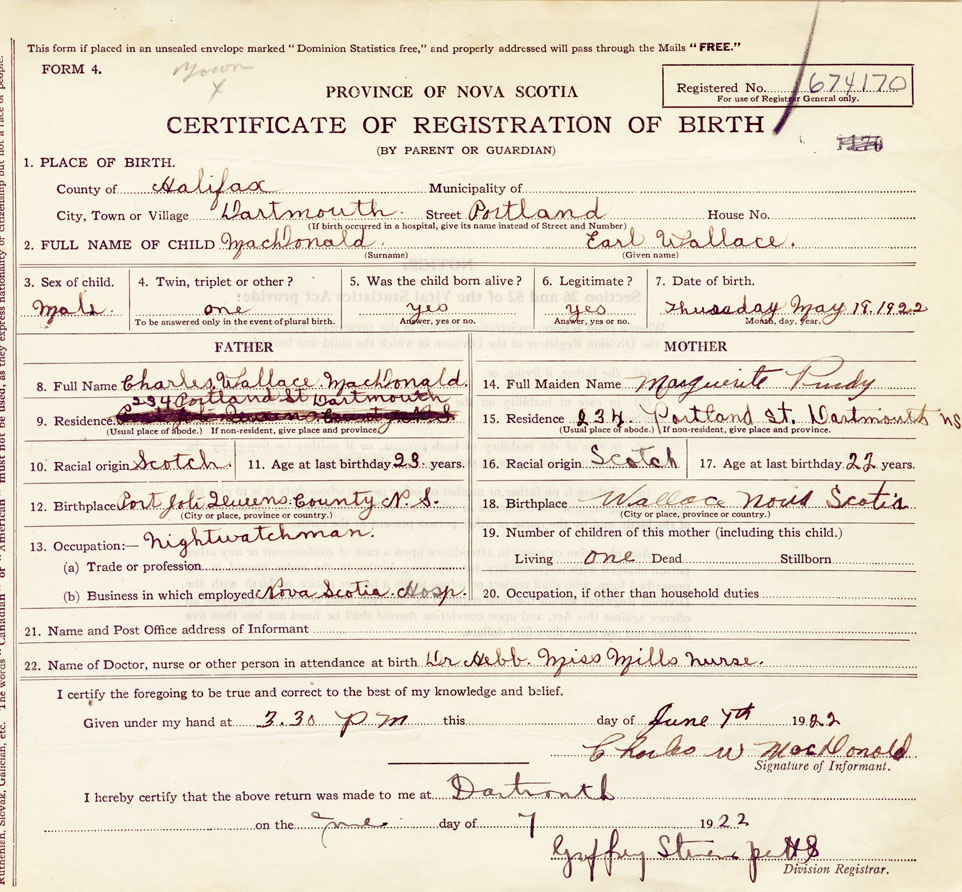 This form if placed in an unsealed envelope marked "Dominion Statistics free," and properly addressed will pass through the Mails "FREE."
FORM 4.
Registered No. 674170
For use of Registrar General only.
PROVINCE OF NOVA SCOTIA
CERTIFICATE OF REGISTRATION OF BIRTH
(BY PARENT OR GUARDIAN)
1. PLACE OF BIRTH.
County of Halifax Municipality of
City, Town or Village Dartmouth. Street Portland House No.
(If birth occurred in a hospital, give its name instead of Street and Number)
2. FULL NAME OF CHILD MacDonald. Earl Wallace.
(Surname) (Given name)
3. Sex of child. 4. Twin, triplet or other? 5. Was the child born alive? 6. Legitimate? 7. Date of birth.
Male. one yes yes Thursday May 18. 1922
To be answered only in the event of plural birth. Answer, yes or no. Answer, yes or no. Month, day, year.
FATHER MOTHER
8. Full Name Charles Wallace MacDonald. 14. Full Maiden Name Marguerite Purdy
234 Portland St Dartmouth
9. Residence 15. Residence 234 Portland St. Dartmouth NS
(Usual place of abode.) If non-resident, give place and province. (Usual place of abode.) If non-resident, give place and province.
10. Racial origin Scotch. 11. Age at last birthday 23 years. 16. Racial origin Scotch 17. Age at last birthday 22 years.
12. Birthplace Port Joli Queens County N.S. 18. Birthplace Wallace Nova Scotia
(City or place, province or country.) (City or place, province or country.)
13. Occupation:— Nightwatchman. 19. Number of children of this mother (including this child.)
(a) Trade or profession Living one Dead Stillborn
(b) Business in which employed Nova Scotia Hosp. 20. Occupation, if other than household duties
21. Name and Post Office address of Informant
22. Name of Doctor, nurse or other person in attendance at birth Dr Hebb. Miss Mills Nurse.
I certify the foregoing to be true and correct to the best of my knowledge and belief.
Given under my hand at 3.30 P M this day of June 7th 1922
Charles W MacDonald
Signature of Informant.
I hereby certify that the above return was made to me at Dartmouth
on the day of 7 1922
Division Registrar.